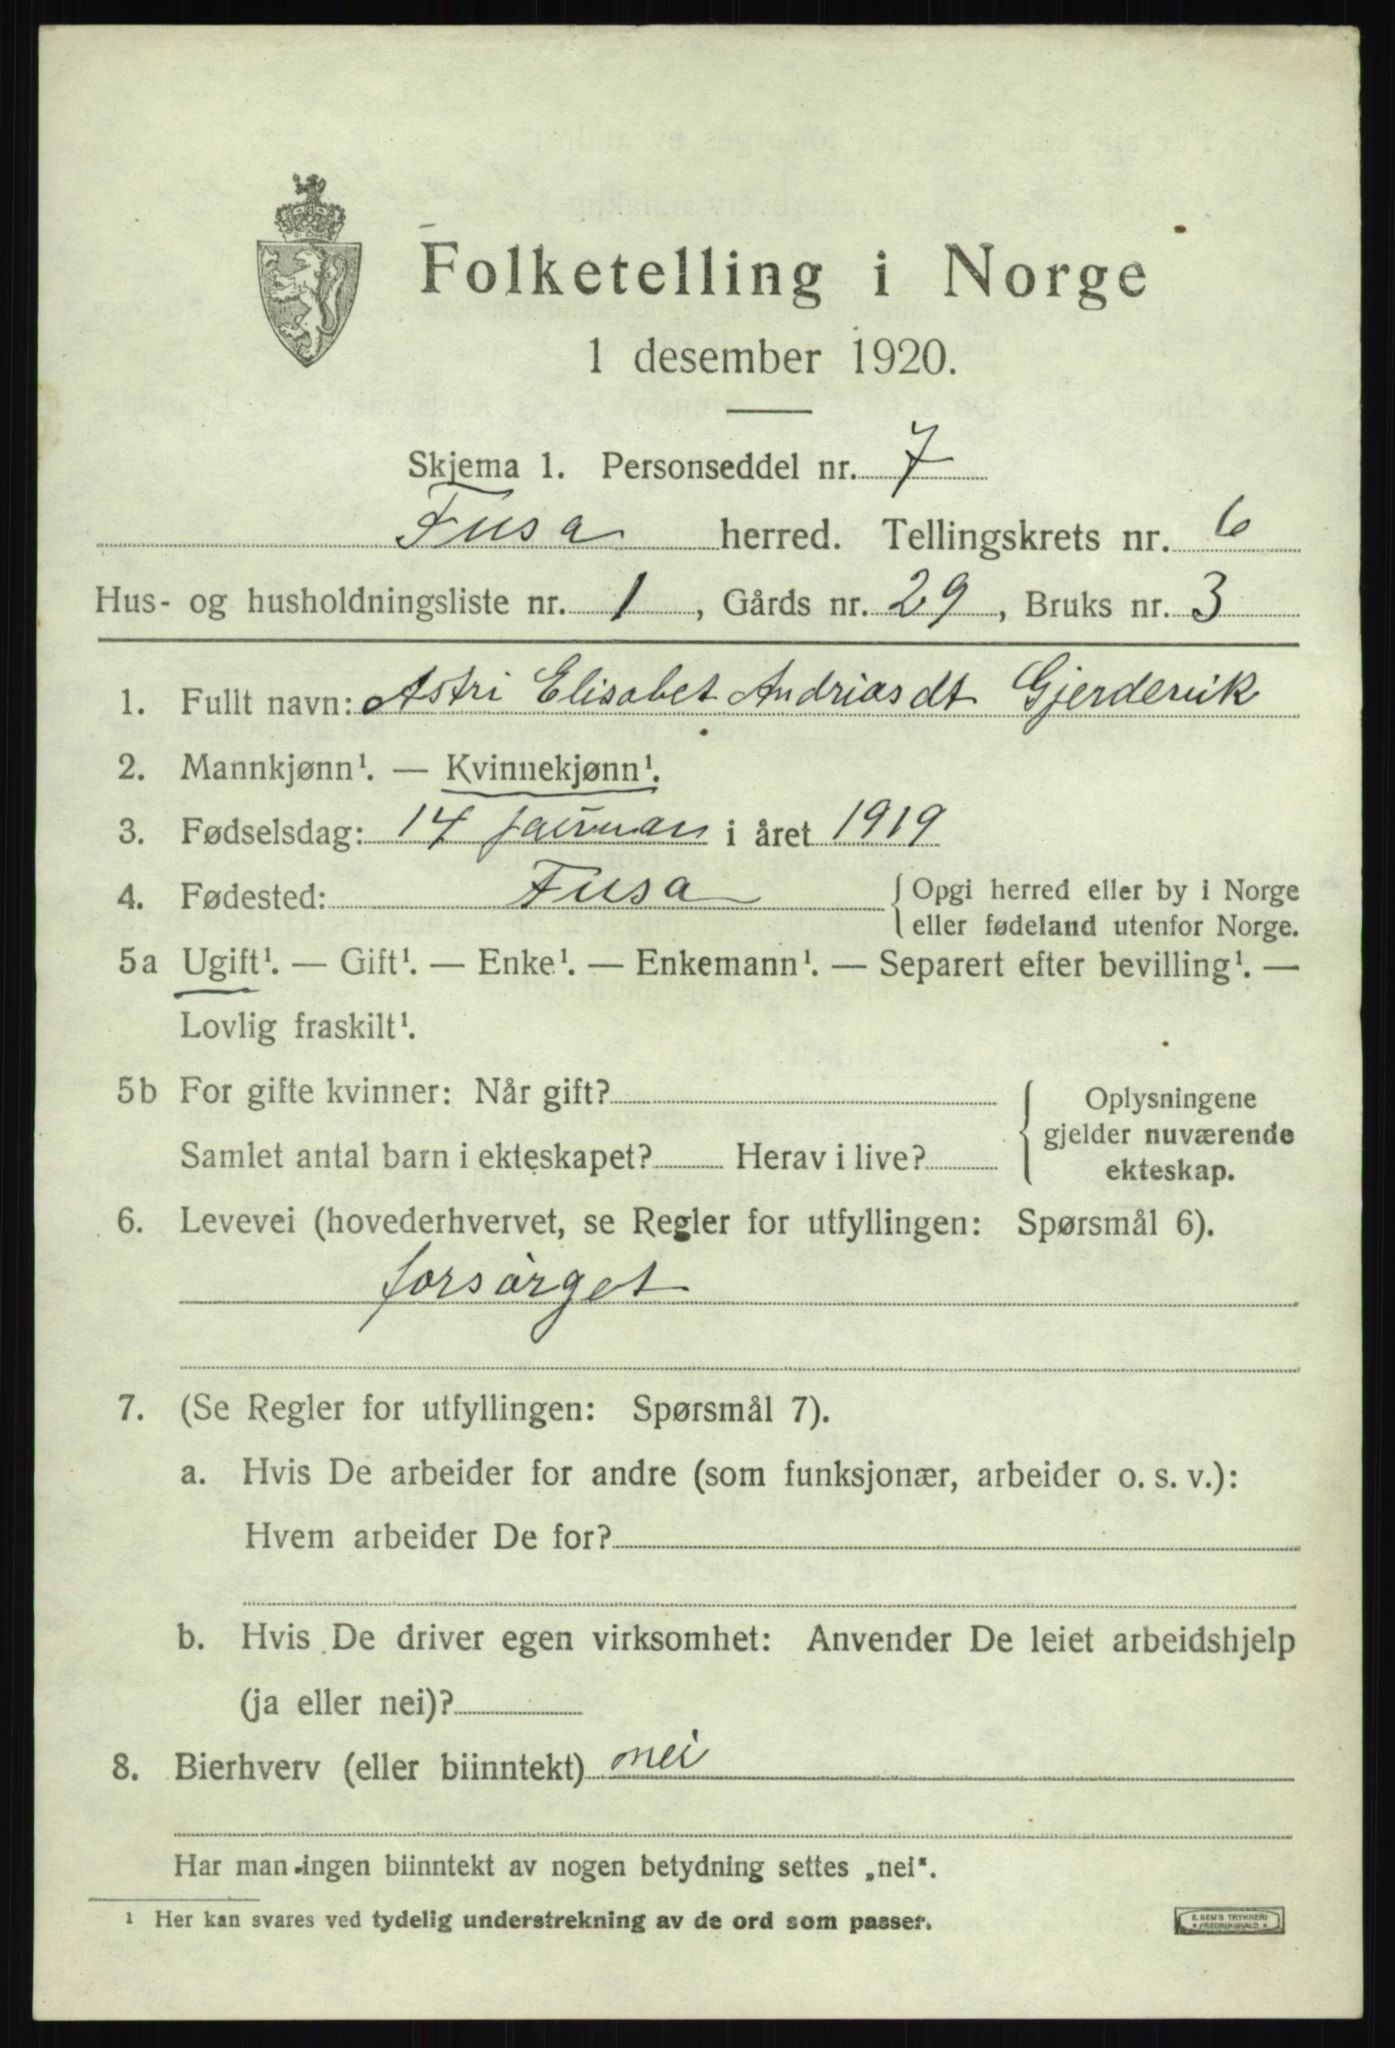 Folketelling i Norge
1 desember 1920.
Skjema 1. Personseddel nr. 7
Fusa herred. Tellingskrets nr. 6
Hus- og husholdningsliste nr. 1, Gårds nr. 29, Bruks nr. 3
1. Fullt navn: Astri Elisabet Andriasdt Gjerdevik
2. Mannkjønn¹. — Kvinnekjønn¹.
3. Fødselsdag: 14 januar i året 1919
4. Fødested: Fusa { Opgi herred eller by i Norge
eller fødeland utenfor Norge.
5a Ugift¹. — Gift¹. — Enke¹. — Enkemann¹. — Separert efter bevilling¹. —
Lovlig fraskilt¹.
5b For gifte kvinner: Når gift?
Samlet antal barn i ekteskapet? Herav i live?
Oplysningene
gjelder nuværende
ekteskap.
6. Levevei (hovederhvervet, se Regler for utfyllingen: Spørsmål 6).
forsørget
7. (Se Regler for utfyllingen: Spørsmål 7).
a. Hvis De arbeider for andre (som funksjonær, arbeider o. s. v.):
Hvem arbeider De for?
b. Hvis De driver egen virksomhet: Anvender De leiet arbeidshjelp
(ja eller nei)?
8. Bierhverv (eller biinntekt) nei
Har man ingen biinntekt av nogen betydning settes „nei“.
¹ Her kan svares ved tydelig understrekning av de ord som passer.
E. SEM'S TRYKKERI
FREDRIKSHALD